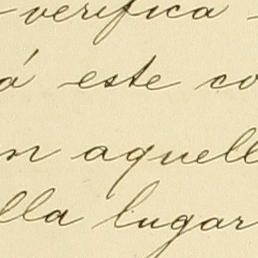 -verifica-
á este co
n aquell
lla lugar